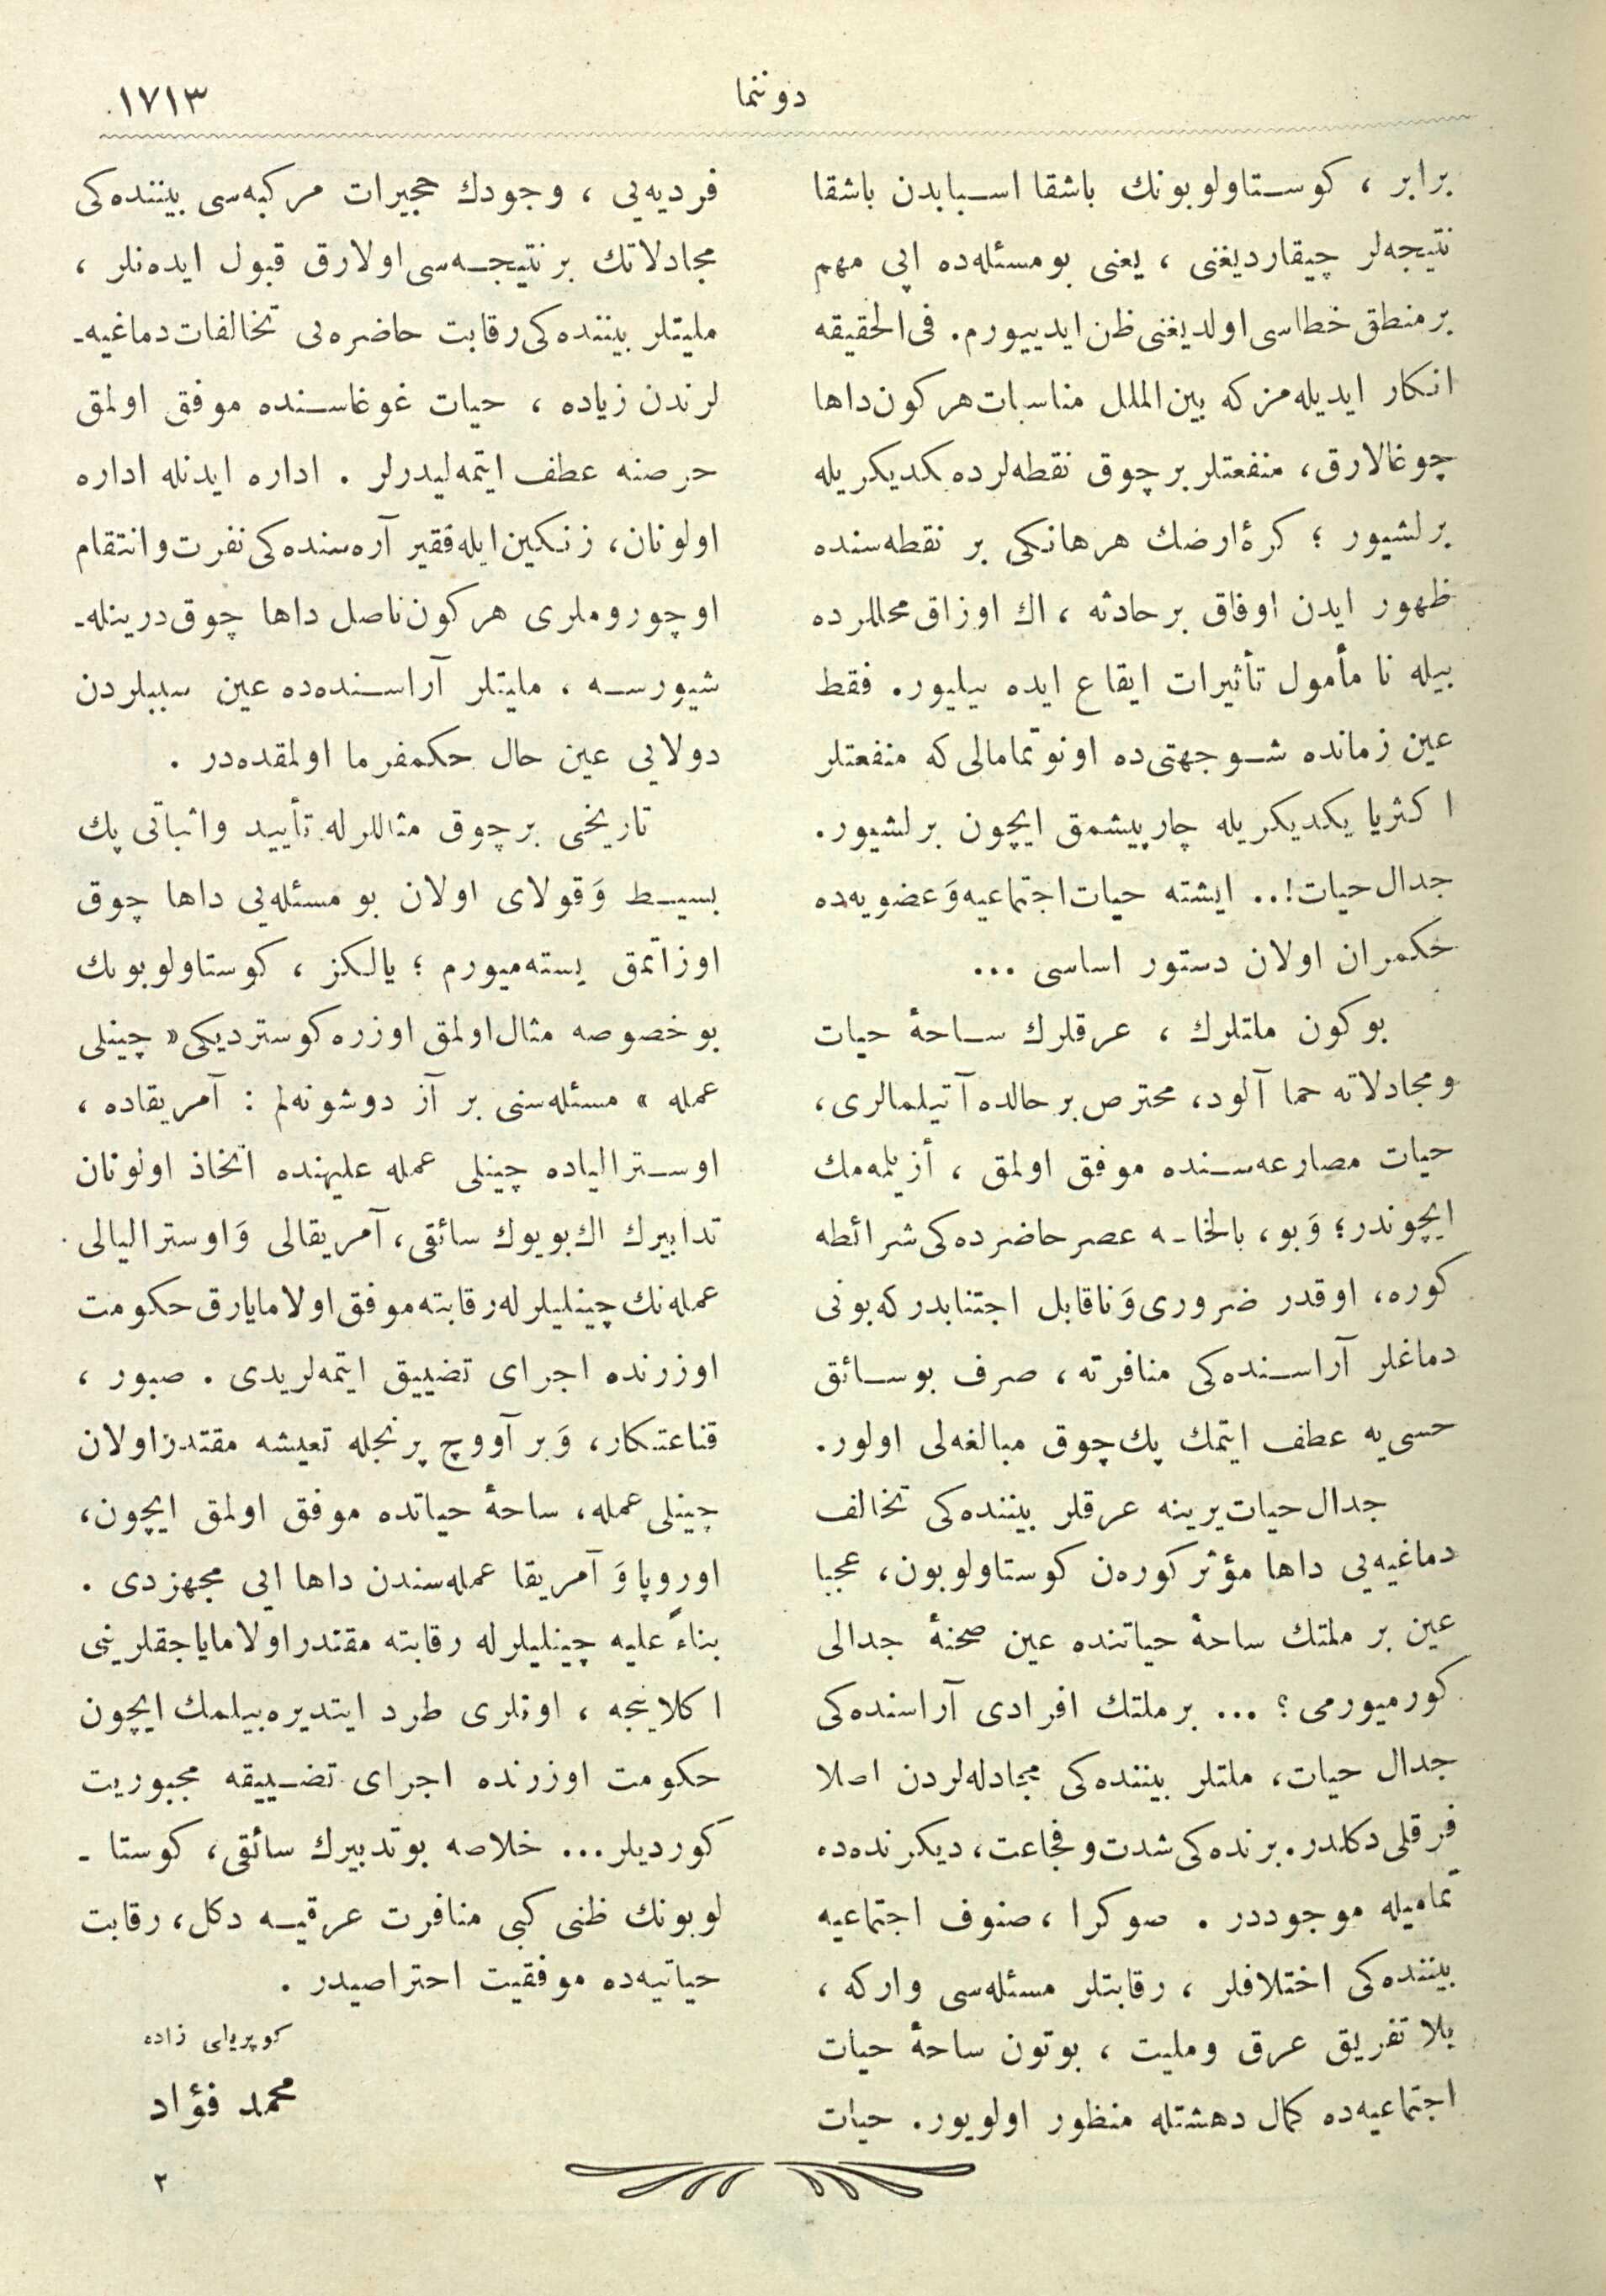 دوننما
١٧١٣
برابر ، كوستاولوبونك باشقا اسبابدن باشقا
نتيجه‌لر چيقارديغنى ، يعنى بومسئله‌ده اپى مهم
برمنطق خطاسى اولديغنى ظن ايدييورم. فى‌الحقيقه
انكار ايديله‌مزكه بين‌الملل مناسبات هركون داها
چوغالارق، منفعتلر برچوق نقطه‌لرده يكديكريله
برلشيور ؛ كرۀ ارضك هرهانكى بر نقطه‌سنده
ظهور ايدن اوفاق برحادثه ، اك اوزاق محللرده
بيله نا مأمول تأثيرات ايقاع ايده بيليور. فقط
عين زمانده شو جهتى‌ده اونوتمامالى‌كه منفعتلر
اكثريا يكديكريله چارپيشمق ايچون برلشيور.
جدال حيات!.. ايشته حيات اجتماعيه وَعضويه‌ده
حكمران اولان دستور اساسى ...
بوكون ملتلرك ، عرقلرك ساحۀ حيات
ومجادلاته حما آلود، محترص برحالده آتيلمالرى،
حيات مصارعه‌سنده موفق اولمق ، أزيلمه‌مك
ايچوندر؛ وَبو، بالخاصه عصر حاضرده‌كى شرائطه
كوره، اوقدر ضرورى وَناقابل اجتنابدركه بونى
دماغلر آراسنده‌كى منافرته، صرف بوسائق
حسى‌يه عطف ايتمك پك چوق مبالغه‌لى اولور.
جدال حيات يرينه عرقلر بيننده‌كى تخالف
دماغيه‌يى داها مؤثر كوره‌ن كوستاولوبون، عجبا
عين بر ملتك ساحۀ حياتنده عين صحنۀ جدالى
كورميورمى؟ ... برملتك افرادى آراسنده‌كى
جدال حيات، ملتلر بيننده‌كى مجادله‌لردن اصلا
فرقلى دكلدر. برنده‌كى شدت وفجاعت، ديكرنده‌ده
تماميله موجوددر . صوكرا ، صنوف اجتماعيه
بيننده‌كى اختلافلر ، رقابتلر مسئله‌سى واركه ،
بلا تفريق عرق ومليت ، بوتون ساحۀ حيات
اجتماعيه‌ده كمال دهشتله منظور اولويور. حيات
فرديه‌يى ، وجودك حجيرات مركبه‌سى بيننده‌كى
مجادلاتك بر نتيجه‌سى اولارق قبول ايده‌نلر ،
مليتلر بيننده‌كى رقابت حاضره‌يى تخالفات دماغيه‌ـ
لرندن زياده ، حيات غوغاسنده موفق اولمق
حرصنه عطف ايتمه‌ليدرلر . اداره ايدنله اداره
اولونان، زنكين ايله فقير آره‌سنده‌كى نفرت وانتقام
اوچوروملرى هركون ناصل داها چوق درينله‌ـ
شيورسه ، مليتلر آراسنده‌ده عين سببلردن
دولايى عين حال حكمفرما اولمقده‌در .
تاريخى برچوق مثاللرله تأييد واثباتى پك
بسيط وَقولاى اولان بو مسئله‌يى داها چوق
اوزاتمق يسته‌ميورم ؛ يالكز ، كوستاولوبونك
بو خصوصه مثال اولمق اوزره كوستردیكى « چينلى
عمله » مسئله‌سنى بر آز دوشونه‌لم : آمريقاده ،
اوستراليا‌ده چينلى عمله عليهنده اتخاذ اولونان
تدابيرك اك بويوك سائقى، آمريقالى وَاوستراليالى
عمله‌نك چينليلرله رقابته موفق اولامايارق حكومت
اوزرنده اجراى تضييق ايتمه‌لريدى . صبور ،
قناعتكار، وَبر آووچ پرنجله تعيشه مقتدر اولان
چينلى عمله، ساحۀ حياتده موفق اولمق ايچون،
اوروپا وَ آمريقا عمله‌سندن داها ايى مجهزدى .
بناءً عليه چينليلرله رقابته مقتدر اولاماياجقلرينى
اكلاينجه ، اونلرى طرد ايتديره‌بيلمك ايچون
حكومت اوزرنده اجراى تضييقه مجبوريت
كورديلر... خلاصه بوتدبيرك سائقى، كوستا ـ
لوبونك ظنى كبى منافرت عرقيه دكل، رقابت
حياتيه‌ده موفقيت احتراصيدر .
كوپريلى زاده
محمد فؤاد
٢